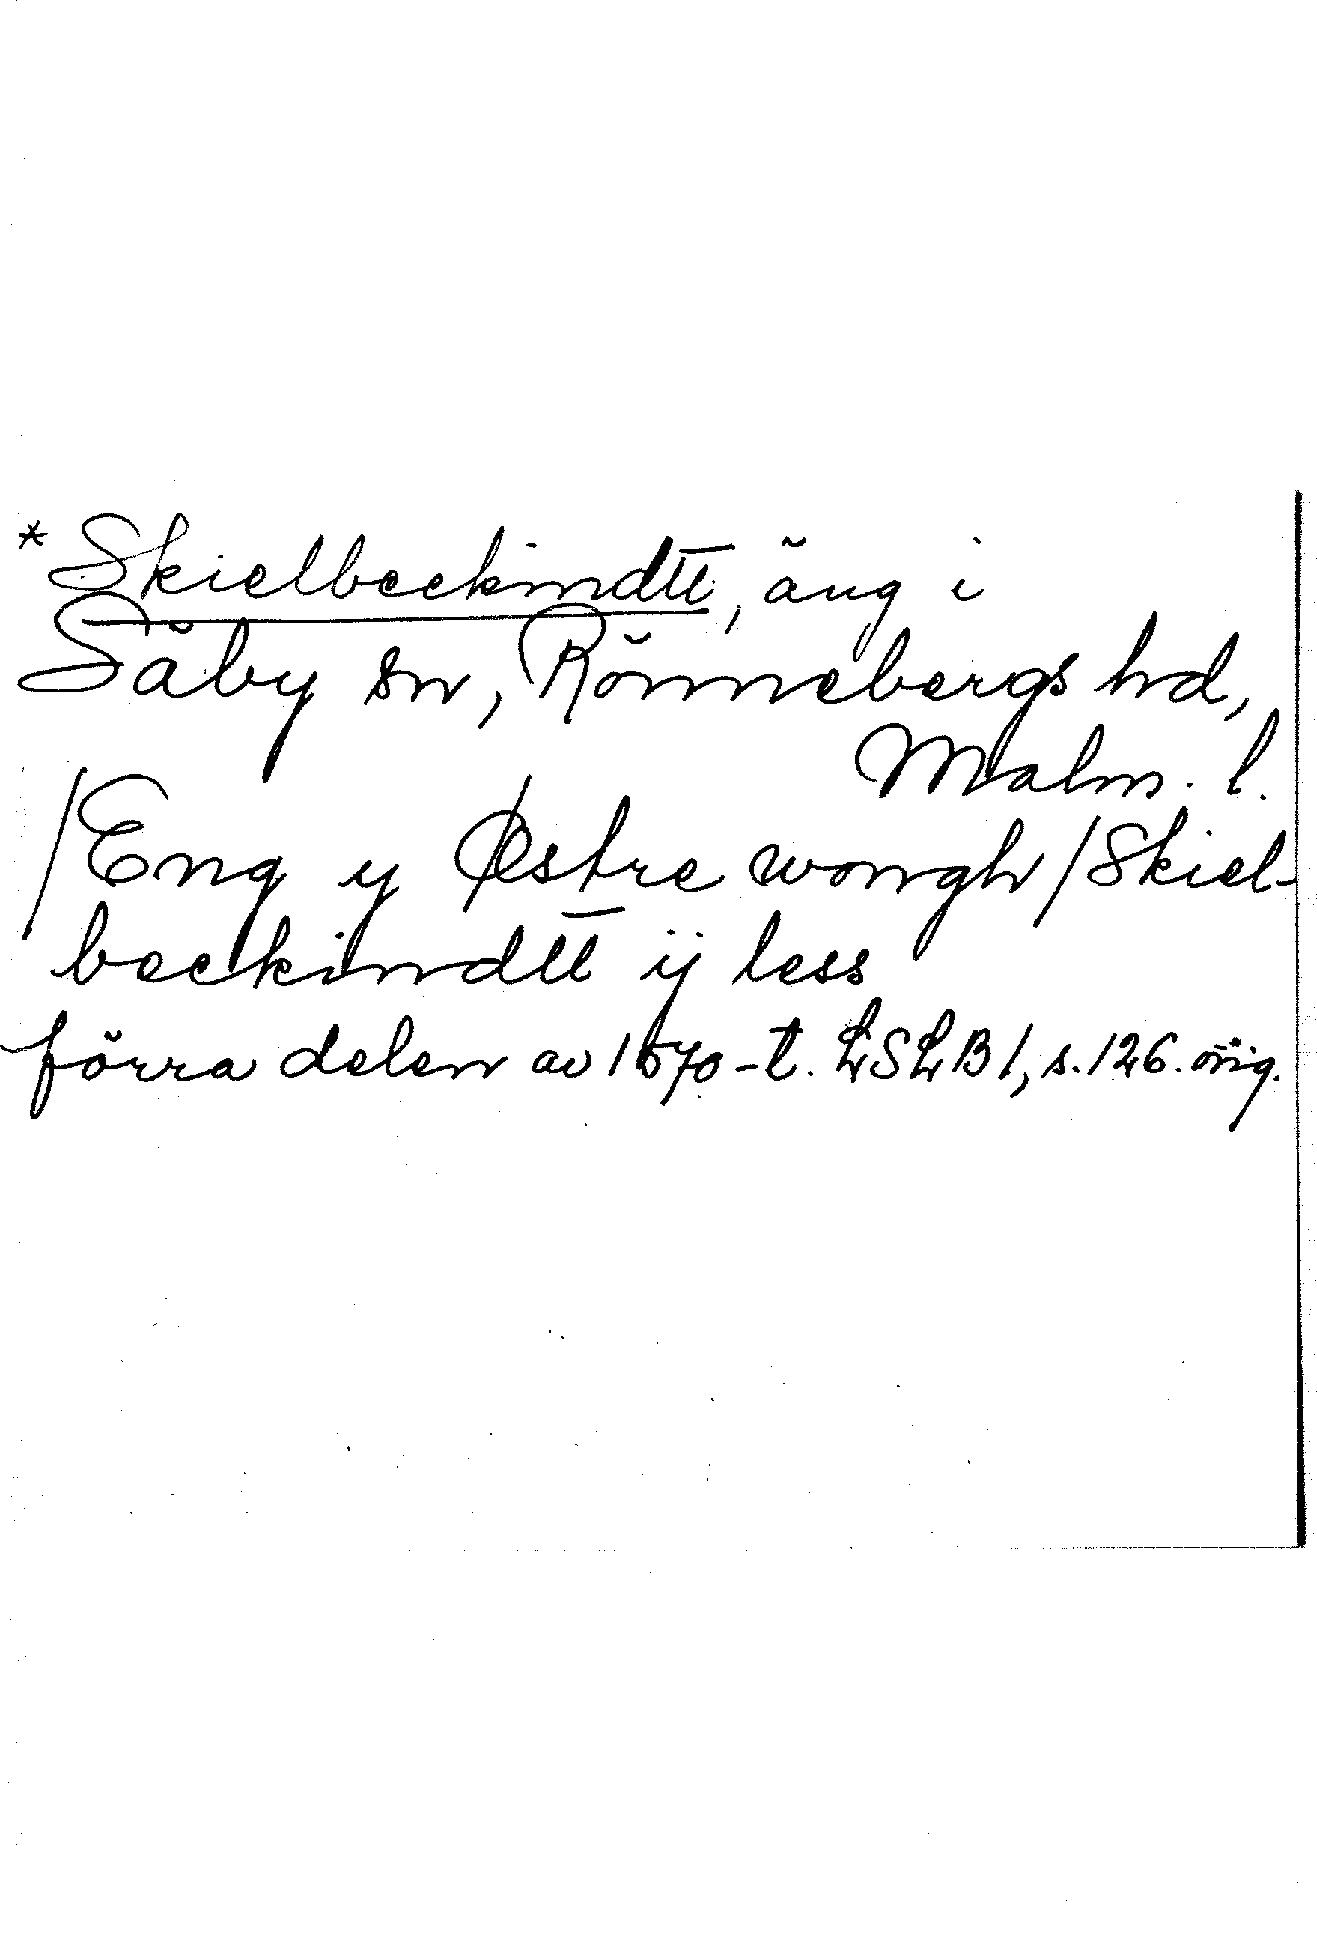 * Skielbeckindtt, äng i
Säby sn, Rönnebergs hd,
Malm. l.
/Eng y Østre wongh/Skiel-
beckindtt ij less
förra delen av 1570-t. LSLB1, s. 126. orig.